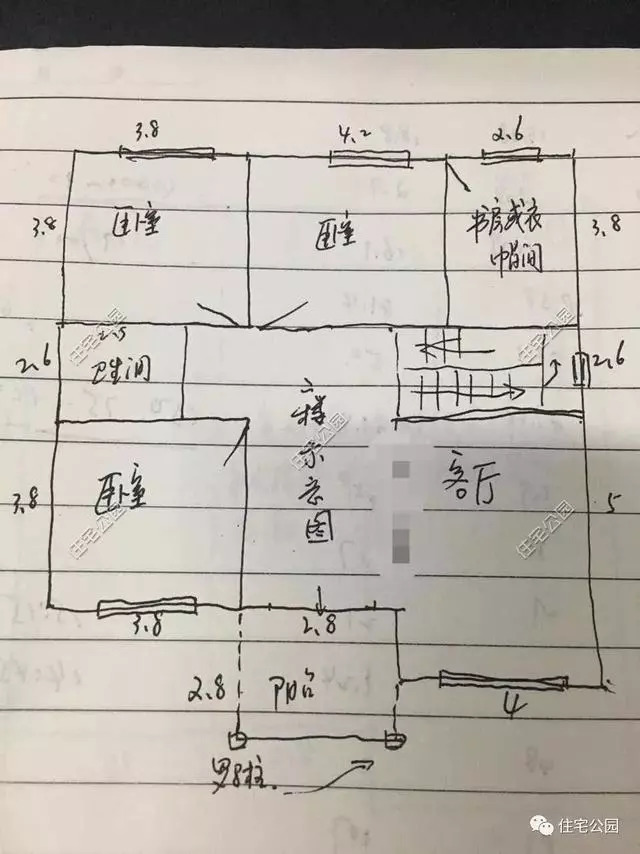 3.8
4.2
2.6
3.8
卧室
卧室
书房或衣
帽间
3.8
住宅公园
2.5
2.6
卫生间
2.6
二楼示意图
住宅公园
住宅公园
住宅公园
3.8
卧室
客厅
5
3.8
2.8
2.8
阳台
4
罗马柱
住宅公园